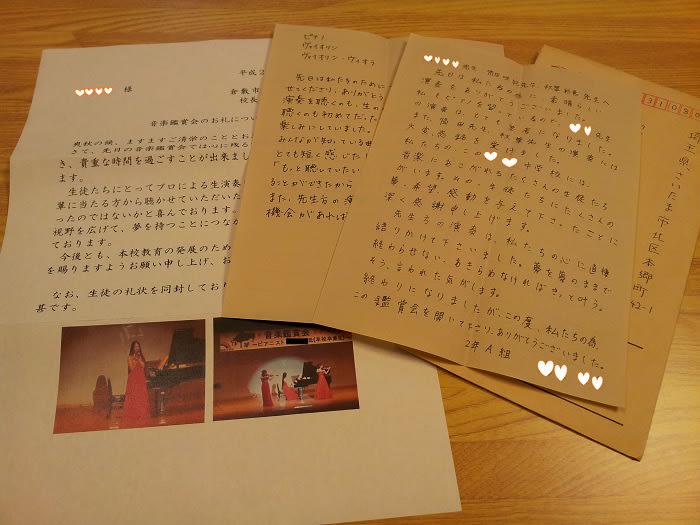 平成2
様
倉敷市
校長
音楽鑑賞会のお礼につい
爽秋の候、ますますご清栄のこととお
さて、先日の音楽鑑賞会では心に残る
き、貴重な時間を過ごすことが出来まし
ます。
生徒たちにとってプロによる生演奏
輩に当たる方から聴かせていただいた
ったのではないかと喜んでおります。
視野を広げて、夢を持つことにつなが
ております。
今後とも、本校教育の発展のため
を賜りますようお願い申し上げ、お
なお、生徒の礼状を同封してお
甚です。
音楽鑑賞会
ピアニスト
(本校卒業生)
ピアノ
ヴァイオリン
ヴァイオリン・ヴィオラ
先日は私たちのために
せてくださり、ありがとう
演奏を聴くのも、生の
聴くのも初めてだった
楽しみにしていました。
みんなが知っている曲
とても短く感じた!
「もっと聴いていたい
ることができたから
また、先生方の演
機会があれば
先生 先生 先生へ
先日は私たちの為に素晴らしい
演奏をありがとうございました。
私もピアノを習っているので 先生
の演奏は、とても参考になりました。
また、 先生、 先生の演奏には
大変感銘を受けました。
私たちの、この 中学校には、
音楽にあこがれるたくさんの生徒たち
がいます。その生徒たちにたくさんの
夢、希望、感動を与えて下さったことに
深く感謝申し上げます。
先生方の演奏は、私たちの心に直接
語りかけて下さいました。夢を夢のままで
終わらせない、あきらめなければきっと叶う。
そう、言われた気がします。
終わりになりましたが、この度、私たちの為、
この鑑賞会を開いて下さり、ありがとうございました。
2年A組
埼玉県さいたま市北区本郷町